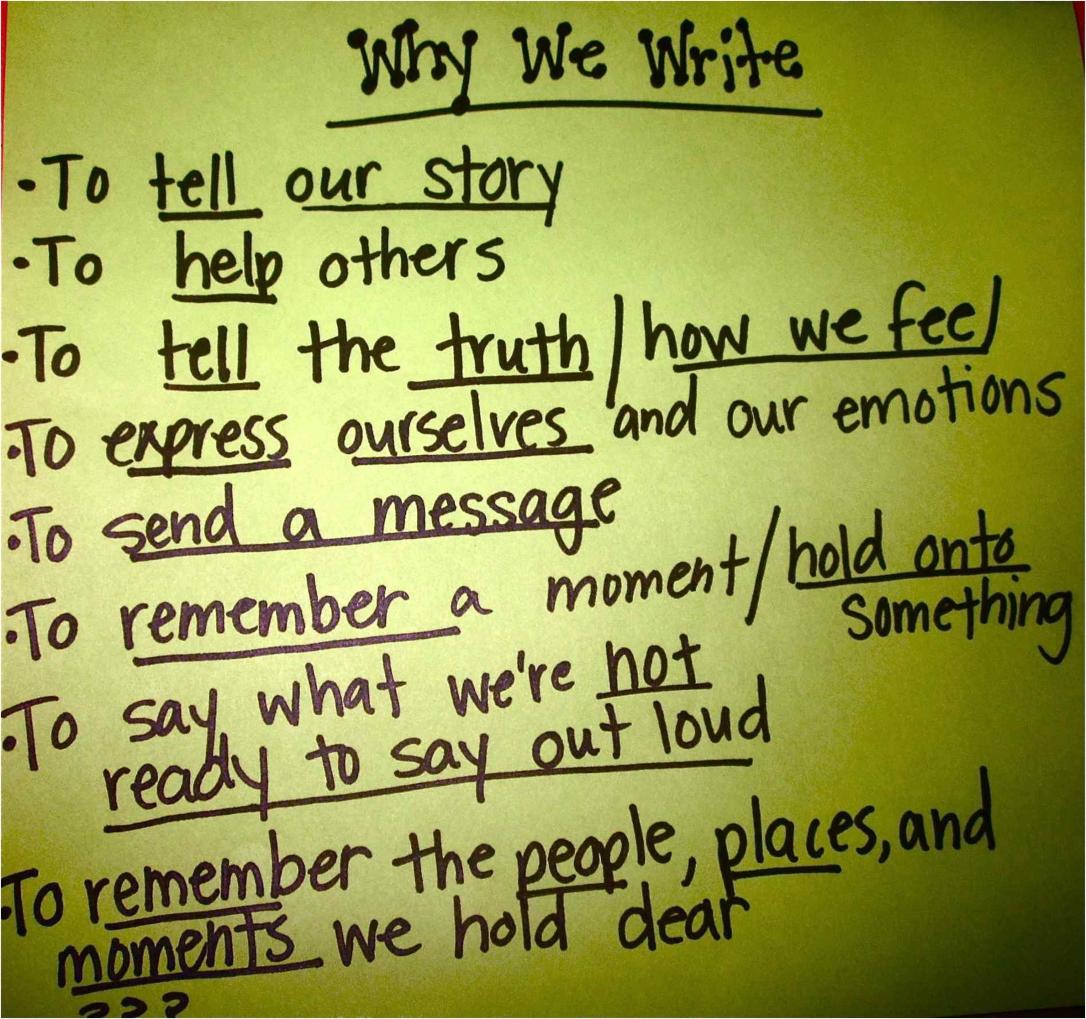 Why We Write
·To tell our story
·To help others
·To tell the truth/how we feel
·To express ourselves and our emotions
·To send a message
·To remember a moment/hold onto
something
·To say what we're not
ready to say out loud
·To remember the people, places, and
moments we hold dear